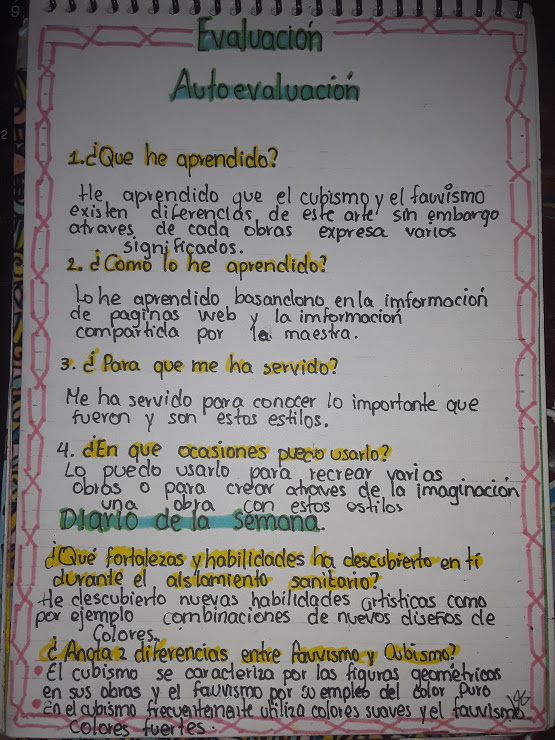 Evaluación
Autoevaluación
1.¿Que he aprendido?
He aprendido que el cubismo y el fauvismo
existen diferencias de este arte sin embargo
atraves de cada obras expresa varios
significados.
2. ¿Como lo he aprendido?
Lo he aprendido basandono en la imformación
de paginas web y la imformación
compartida por la maestra.
3. ¿Para que me ha servido?
Me ha servido para conocer lo importante que
fueron y son estos estilos.
4. ¿En que ocasiones puedo usarlo?
Lo puedo usarlo para recrear varias
obras o para crear atraves de la imaginación
una obra con estos estilos
Diario de la semana.
¿Qué fortalezas y habilidades ha descubierto en tí
durante el aislamiento sanitario?
He descubierto nuevas habilidades artísticas como
por ejemplo combinaciones de nuevos diseños de
colores.
¿Anota 2 diferencias entre fauvismo y Cubismo?
• El cubismo se caracteriza por las figuras geométricas
en sus obras y el fauvismo por su empleo del color puro
• En el cubismo frecuentemente utiliza colores suaves y el fauvismo
colores fuertes.